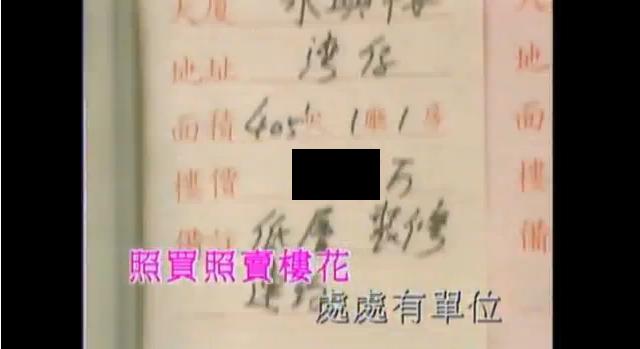 大廈 永興樓
地址 灣仔
面積 405呎 1廳1房
樓價 万
備註 低層 裝修
照買照賣樓花
處處有單位
地
面
樓
備